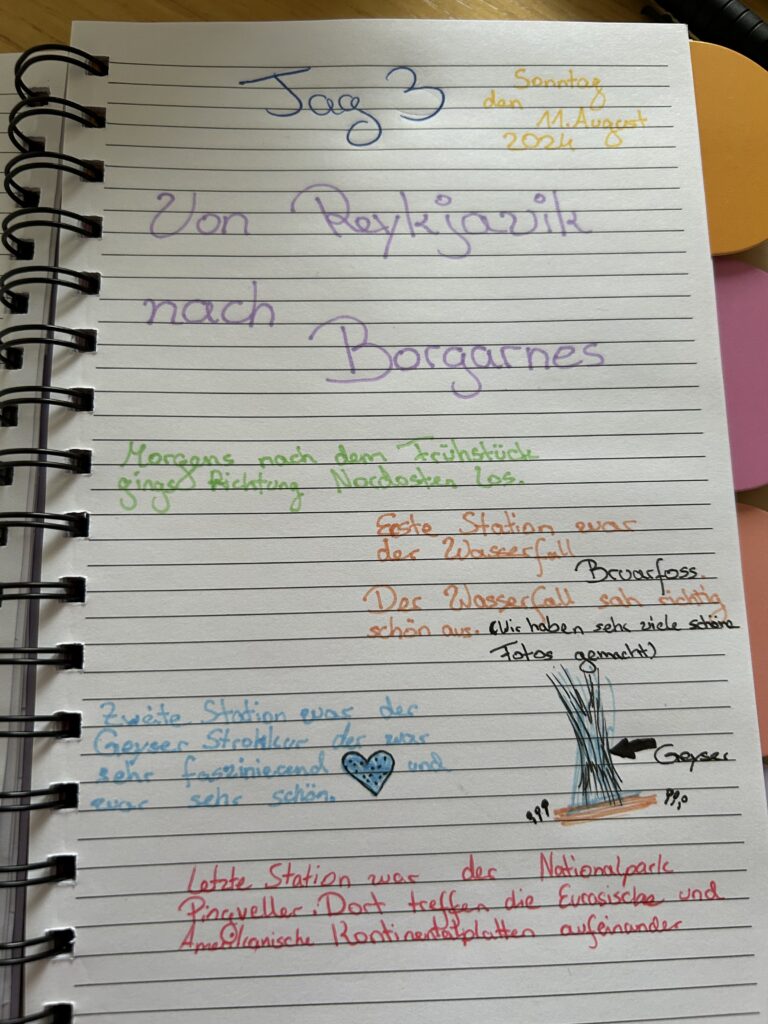 Tag 3
Sonntag
den 11. August
2024
Von Reykjavik
nach
Borgarnes
Morgens nach dem Frühstück
gings Richtung Nordosten los.
Erste Station war
der Wasserfall
Bruarfoss.
Der Wasserfall sah richtig
schön aus. (Wir haben sehr viele schöne
Fotos gemacht)
Zweite Station war der
Geyser Strokkur der war
sehr faszinierend und
war sehr schön.
Geyser
Letzte Station war der Nationalpark
Pingveller. Dort treffen die Eurasische und
Amerikanische Kontinentalplatten aufeinander